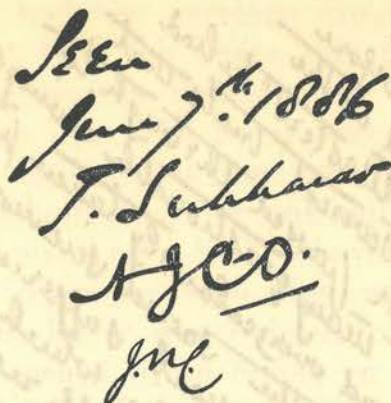 Seen
June 7th. 1886
T. Subbarao
A J C-O.
J.N.C